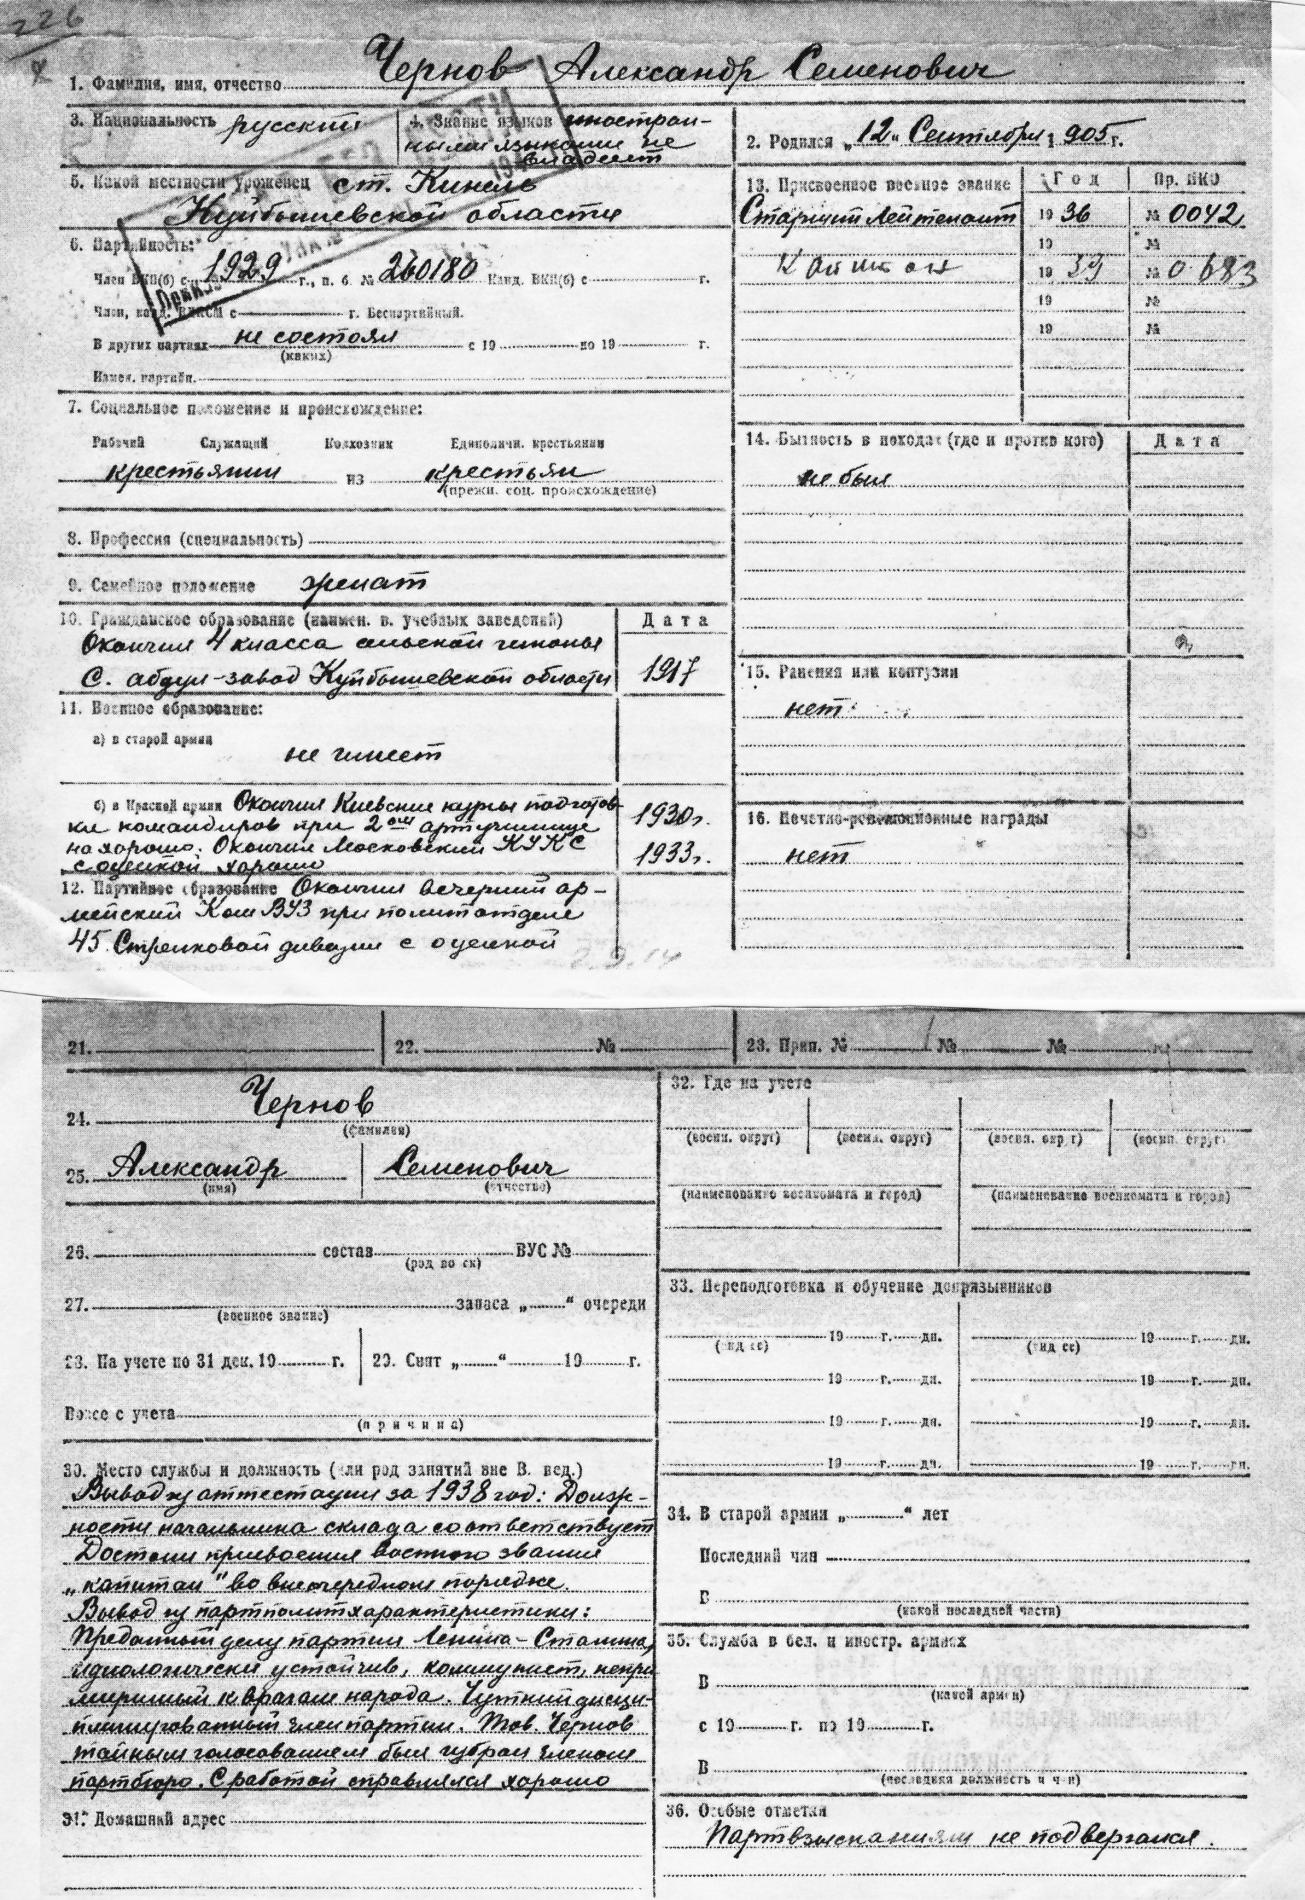 226
1. Фамилия, имя, отчество Чернов Александр Семенович
3. Национальность русский
4. Знание языков иностран-
ными языками не
владеет
2. Родился „12“ Сентября 1905 г.
5. Какой местности уроженец ст. Кинель
Куйбышевской области
6. Партийность:
Член ВКП(б) с 1929 г., п. б. № 260180 Канд. ВКП(б) с г.
Член, канд. ВЛКСМ с г. Беспартийный.
В других партиях не состоял с 19 по 19 г.
(каких)
Измен. партийн.
7. Социальное положение и происхождение:
Рабочий Служащий Колхозник Единоличн. крестьянин
крестьянин из крестьян
(прежн. соц. происхождение)
8. Профессия (специальность)
9. Семейное положение женат
10. Гражданское образование (наимен. в. учебных заведений) Дата
Окончил 4 класса сельской школы
с. абдул-завод Куйбышевской области 1917
11. Военное образование:
а) в старой армии
не имеет
б) в Красной армии Окончил Киевские курсы подготов-
ки командиров при 2 ом артучилище 1930г.
на хорошо. Окончил Московский КУКС 1933г.
с оценкой хорошо
12. Партийное образование Окончил вечерний ар-
мейский Ком ВУЗ при политотделе
45 Стрелковой дивизии с оценкой
13. Присвоенное военное звание Год Пр. НКО
Старший Лейтенант 19 36 № 0042
19 №
Капитан 19 39 № 0683
19 №
19 №
14. Бытность в походах (где и против кого) Дата
не был
15. Ранения или контузии
нет
16. Почетно-революционные награды
нет
21. 22. № 23. Прип. № № №
Чернов
24.
(фамилия)
25. Александр Семенович
(имя) (отчество)
26. состав ВУС №
(род во ск)
27. запаса „ “ очереди
(военное звание)
28. На учете по 31 дек. 19 г. 29. Снят „ “ 19 г.
Вовсе с учета
(причина)
30. Место службы и должность (или род занятий вне В. вед.)
Вывод из аттестации за 1938 год: Долж-
ности начальника склада соответствует
Достоин присвоения военного звания
„капитан“ во внеочередном порядке.
Вывод из партполитхарактеристики:
Преданный делу партии Ленина-Сталина,
идиологически устойчив, коммунист, непри-
миримый к врагам народа. Чуткий дисци-
плинированный член партии. Тов. Чернов
тайным голосованием был избран членом
партбюро. С работой справлялся хорошо
31. Домашний адрес
32. Где на учете
(военн. округ) (военн. округ) (военн. округ) (военн. округ)
(наименование военкомата и город) (наименование военкомата и город)
33. Переподготовка и обучение допризывников
19 г. дн. 19 г. дн.
(вид ее) (вид ее)
19 г. дн. 19 г. дн.
19 г. дн. 19 г. дн.
19 г. дн. 19 г. дн.
34. В старой армии „ “ лет
Последний чин
В
(какой последней части)
35. Служба в бел. и иностр. армиях
В
(какой армии)
с 19 г. по 19 г.
В
(последняя должность и чин)
36. Особые отметки
Партвзысканиям не подвергался.